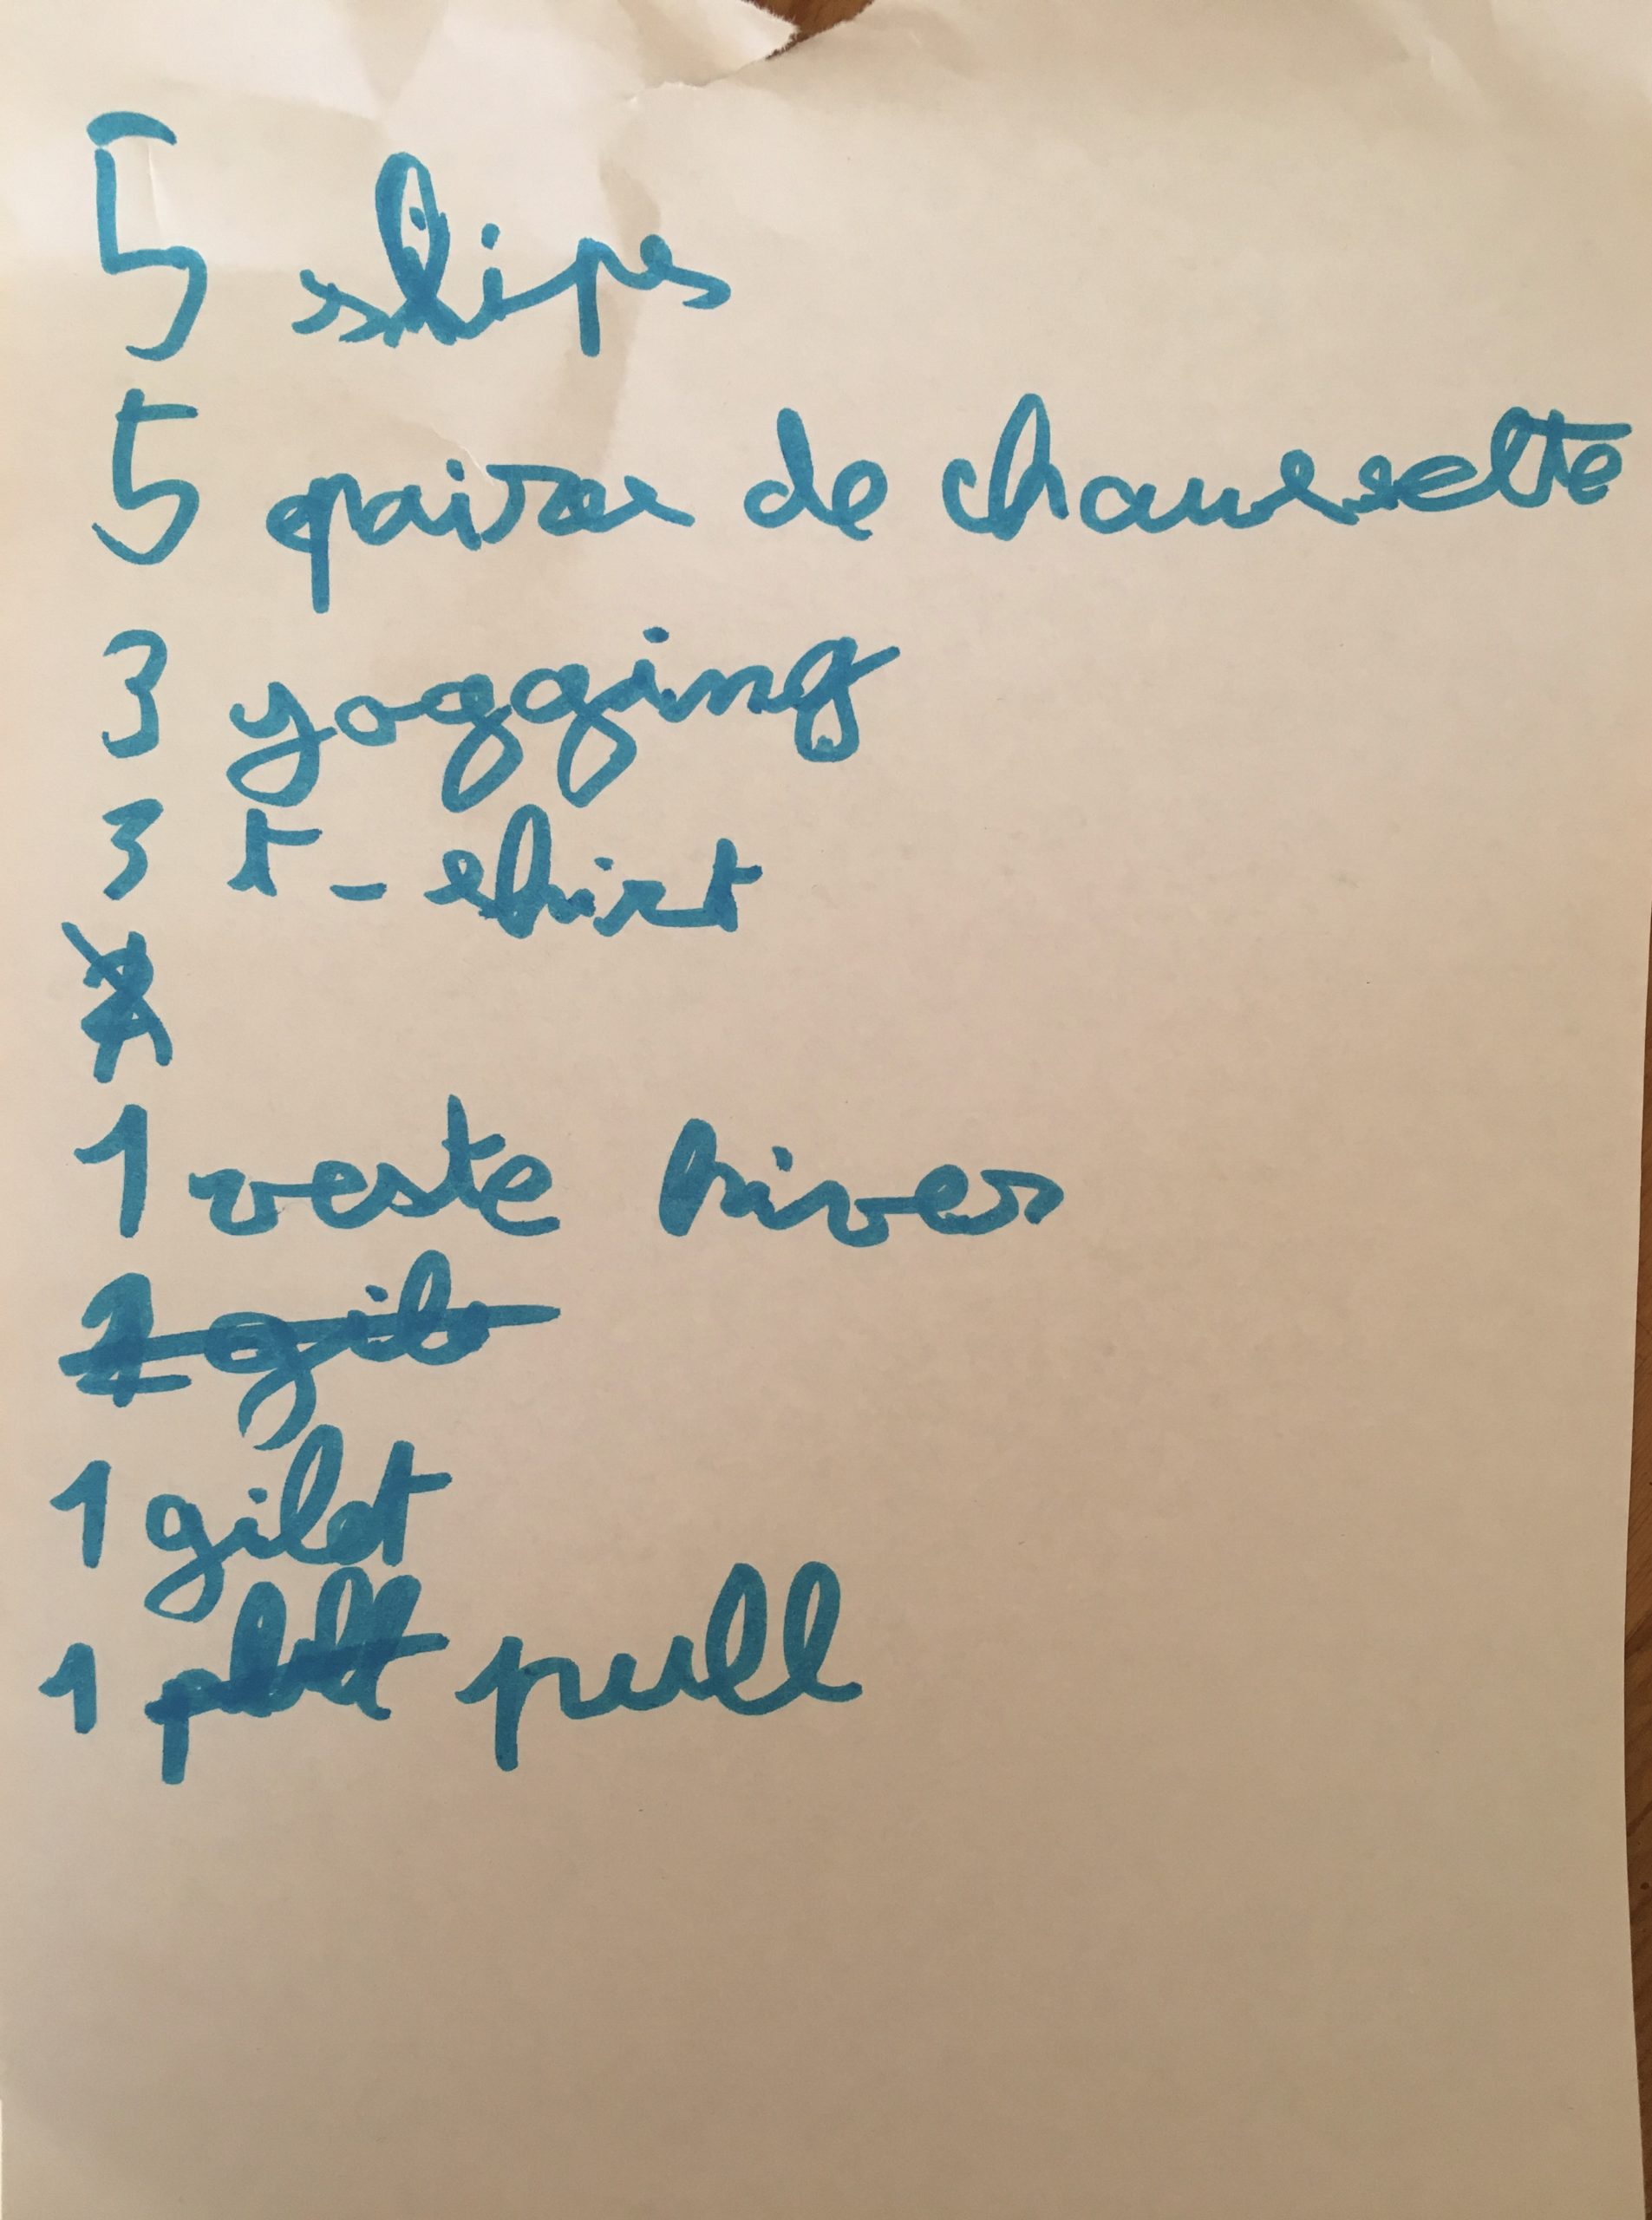 5 slips
5 paires de chaussette
3 yogging
3 t-shirt
1 veste hiver
1 gilot
1 pull